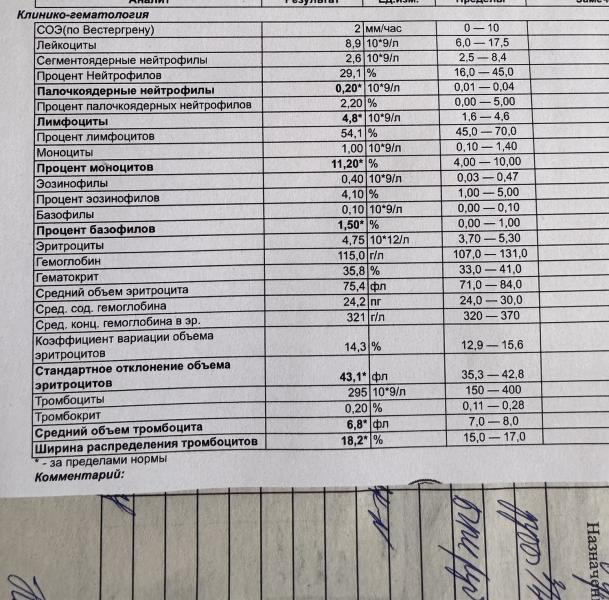 Аналит Результат Ед.изм. Пределы
Клинико-гематология
СОЭ(по Вестергрену) 2 мм/час 0 — 10
Лейкоциты 8,9 10*9/л 6,0 — 17,5
Сегментоядерные нейтрофилы 2,6 10*9/л 2,5 — 8,4
Процент Нейтрофилов 29,1 % 16,0 — 45,0
Палочкоядерные нейтрофилы 0,20* 10*9/л 0,01 — 0,04
Процент палочкоядерных нейтрофилов 2,20 % 0,00 — 5,00
Лимфоциты 4,8* 10*9/л 1,6 — 4,6
Процент лимфоцитов 54,1 % 45,0 — 70,0
Моноциты 1,00 10*9/л 0,10 — 1,40
Процент моноцитов 11,20* % 4,00 — 10,00
Эозинофилы 0,40 10*9/л 0,03 — 0,47
Процент эозинофилов 4,10 % 1,00 — 5,00
Базофилы 0,10 10*9/л 0,00 — 0,10
Процент базофилов 1,50* % 0,00 — 1,00
Эритроциты 4,75 10*12/л 3,70 — 5,30
Гемоглобин 115,0 г/л 107,0 — 131,0
Гематокрит 35,8 % 33,0 — 41,0
Средний объем эритроцита 75,4 фл 71,0 — 84,0
Сред. сод. гемоглобина 24,2 пг 24,0 — 30,0
Сред. конц. гемоглобина в эр. 321 г/л 320 — 370
Коэффициент вариации объема
эритроцитов 14,3 % 12,9 — 15,6
Стандартное отклонение объема
эритроцитов 43,1* фл 35,3 — 42,8
Тромбоциты 295 10*9/л 150 — 400
Тромбокрит 0,20 % 0,11 — 0,28
Средний объем тромбоцита 6,8* фл 7,0 — 8,0
Ширина распределения тромбоцитов 18,2* % 15,0 — 17,0
* - за пределами нормы
Комментарий: